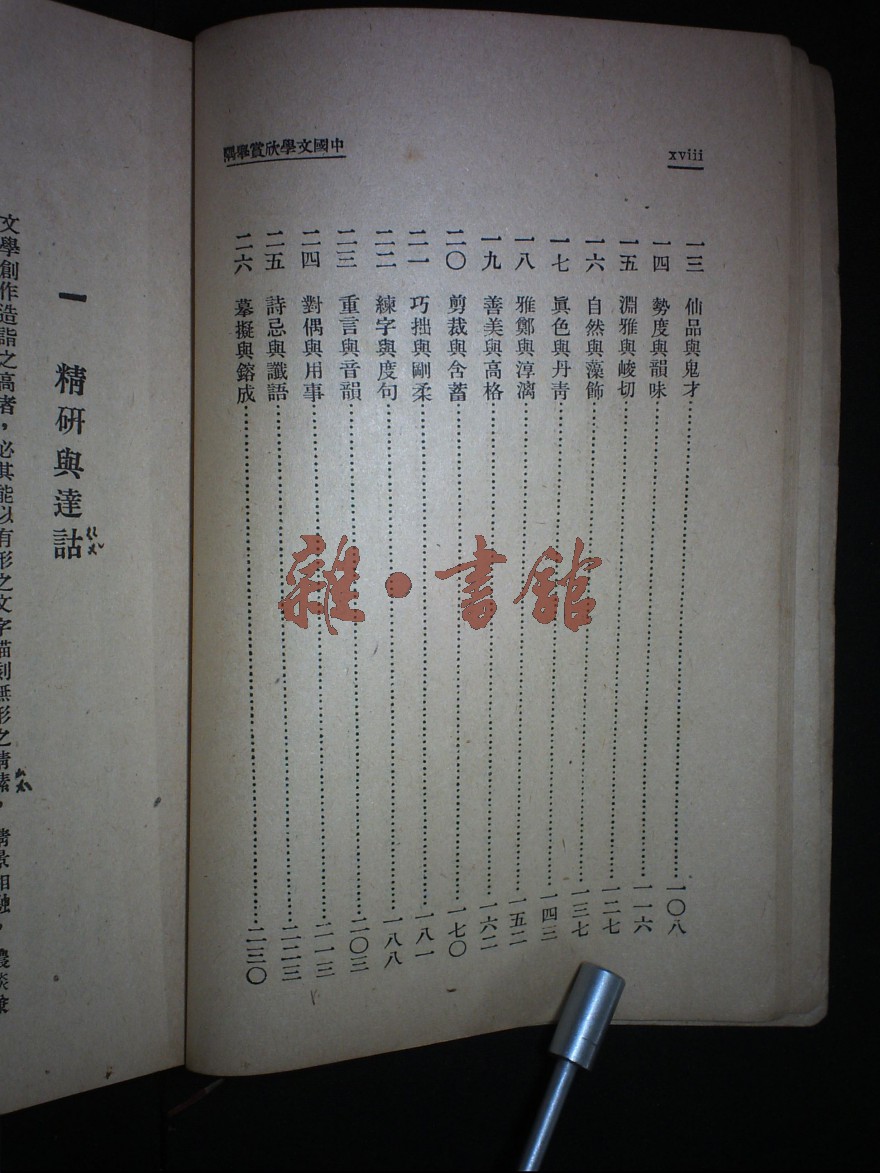 中國文學欣賞舉隅
xviii
一三 仙品與鬼才……一〇八
一四 勢度與韻味……一一六
一五 淵雅與峻切……一二七
一六 自然與藻飾……一三七
一七 眞色與丹青……一四三
一八 雅鄭與淳漓……一五二
一九 善美與高格……一六二
二〇 剪裁與含蓄……一七〇
二一 巧拙與剛柔……一八一
二二 練字與度句……一八八
二三 重言與音韻……二〇三
二四 對偶與用事……二一三
二五 詩忌與讖語……二二三
二六 摹擬與鎔成……二三〇
雜·書館
一 精研與達詁
文學創作造詣之高者，必其能以有形之文字描刻無形之情愫，情景相融，濃淡